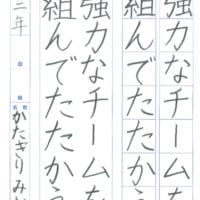 強力なチームを
組んでたたかう
強力なチームを
組んでたたかう
三年
かたぎり み